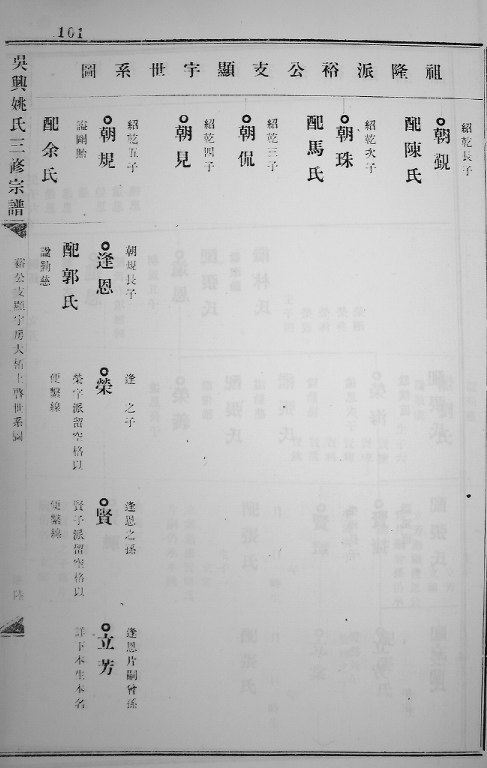 161
祖隆派裕公支顯宇世系圖
紹乾長子
朝覲
配陳氏
紹乾次子
朝珠
配馬氏
紹乾三子
朝侃
紹乾四子
朝見
紹乾五子
朝規
諡剛貽
配余氏
朝規長子
逢恩
配郭氏
諡勤慈
逢之子
榮
榮字派留空格以
便繫線
逢恩之孫
賢
賢字派留空格以
便繫線
逢恩片嗣曾孫
立芳
詳下本生本名
吳興姚氏三修宗譜
裕公支顯宇房大栢上啓世系圖
陸